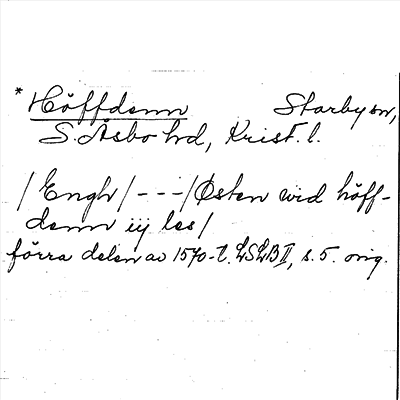 * Höffdamm Starby sn,
S. Åsbo hd, Krist. l.
/Engh/---/Østen wid höff-
damm iij les/
förra delen av 1570-t. LSLB II, s. 5. orig.